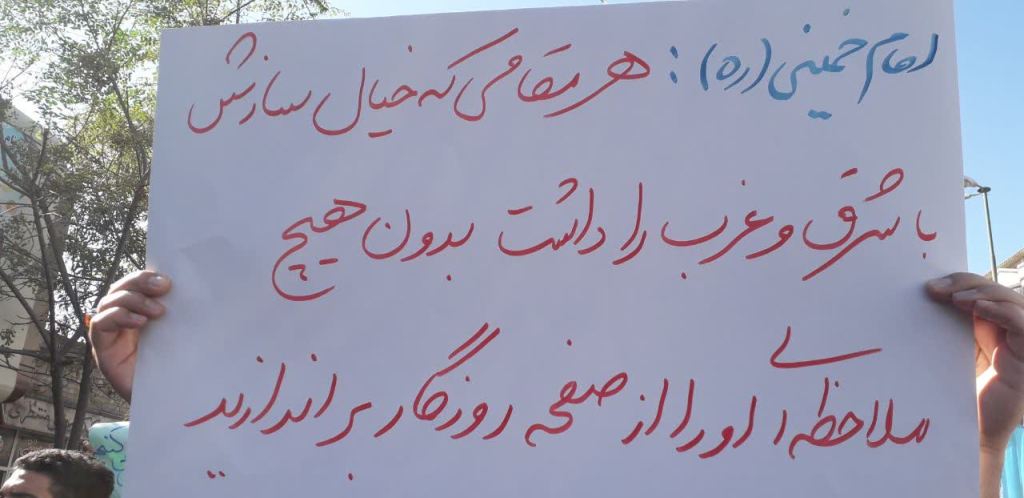 امام خمینی (ره): هر مقامی که خیال سازش
با شرق و غرب را داشت بدون هیچ
ملاحظه ای او را از صفحه روزگار براندازید